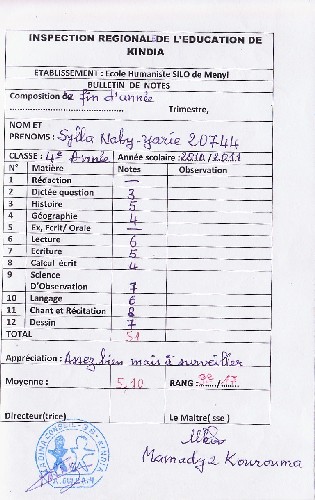 INSPECTION REGIONAL DE L'EDUCATION DE
KINDIA
ETABLISSEMENT : Ecole Humaniste SILO de Menyi
BULLETIN DE NOTES
Composition de fin d'année
Trimestre,
NOM ET
PRENOMS : Sylla Naby-Yarie 20744
CLASSE : 4e Année Année scolaire : 2010/2011
N° Matière Notes Observation
1 Rédaction —
2 Dictée question 3
3 Histoire 5
4 Géographie 4
5 Ex, Ecrit/ Orale —
6 Lecture 6
7 Ecriture 5
8 Calcul écrit 4
9 Science
D'Observation 7
10 Langage 6
11 Chant et Récitation 8
12 Dessin 7
TOTAL 51
Appréciation : Assez bien mais à surveiller
Moyenne : 5,10 RANG :
Directeur(trice) Le Maitre( sse )
Mamady 2 Kourouma